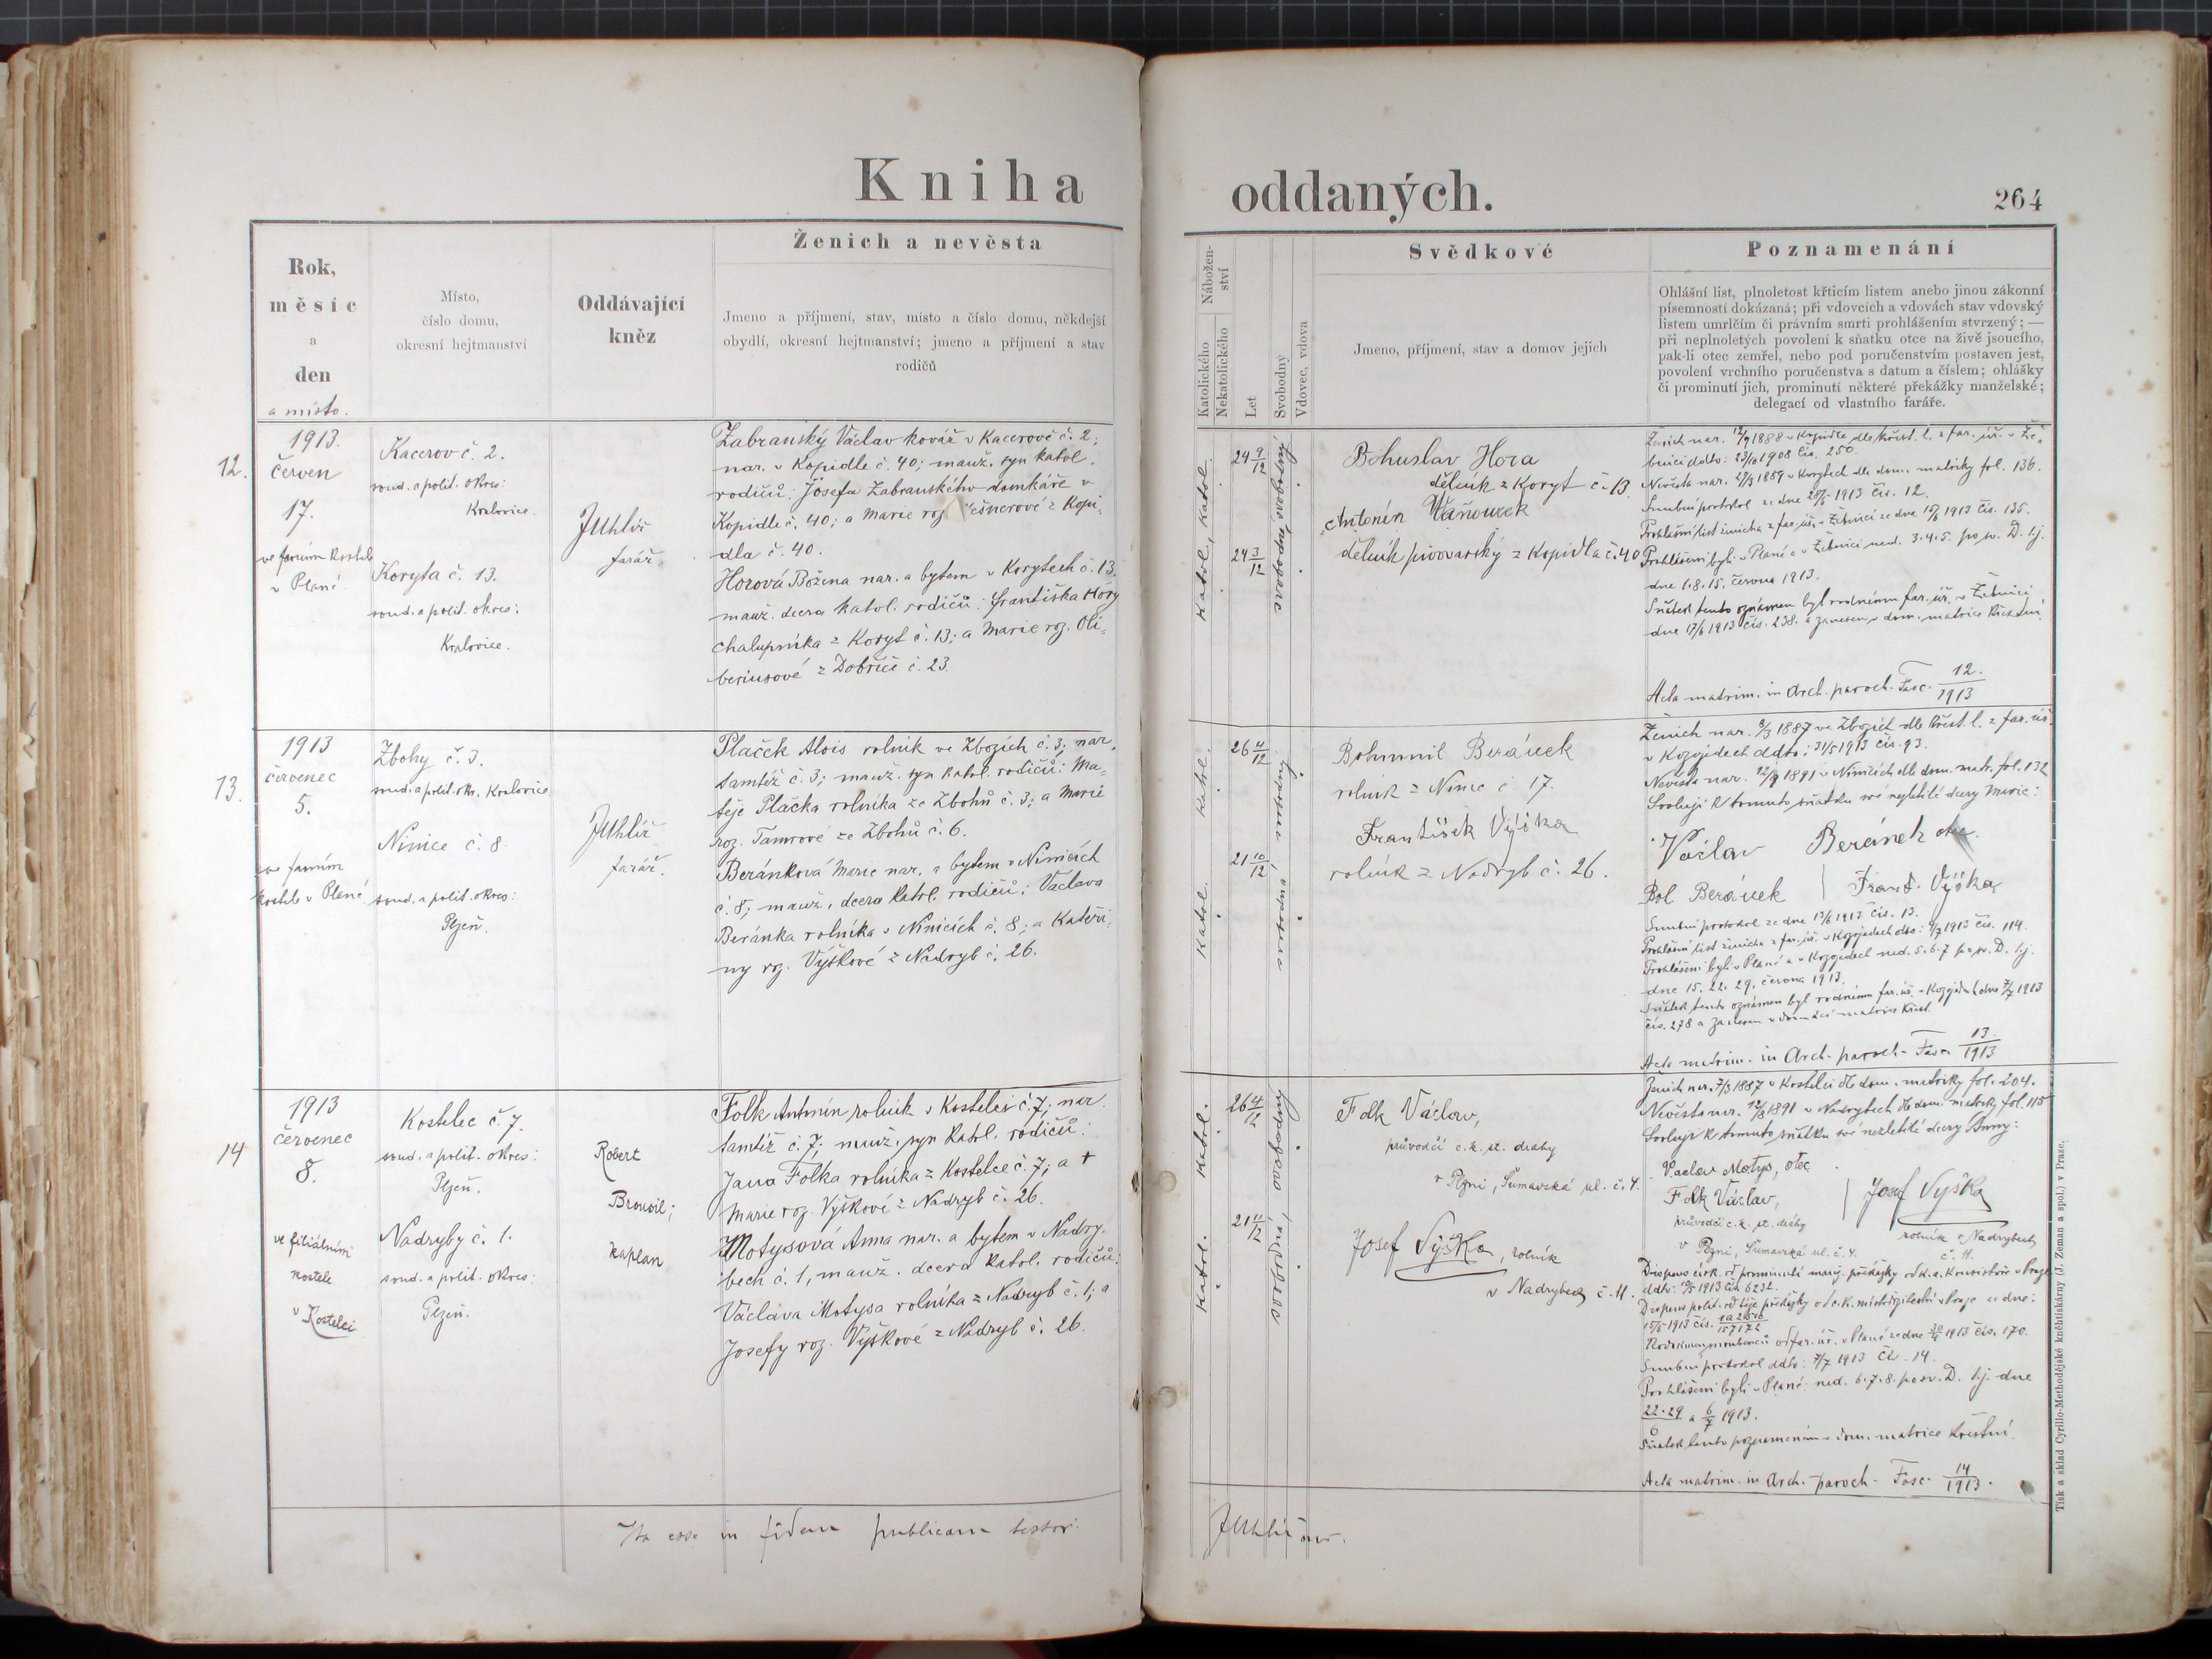 Kniha oddaných.
264
Rok,
měsíc
a
den
a místo.
Místo,
číslo domu,
okresní hejtmanství
Oddávající
kněz
Ženich a nevěsta
Jmeno a příjmení, stav, místo a číslo domu, někdejší
obydlí, okresní hejtmanství; jmeno a příjmení a stav
rodičů
Nábožen-
ství
Katolického
Nekatolického
Let
Svobodný
Vdovec, vdova
Svědkové
Jmeno, příjmení, stav a domov jejich
Poznamenání
Ohlášní list, plnoletost křticím listem anebo jinou zákonní
písemností dokázaná; při vdovcích a vdovách stav vdovský
listem umrlčím či právním smrti prohlášením stvrzený; —
při neplnoletých povolení k sňatku otce na živě jsoucího,
pak-li otec zemřel, nebo pod poručenstvím postaven jest,
povolení vrchního poručenstva s datum a číslem; ohlášky
či prominutí jich, prominutí některé překážky manželské;
delegací od vlastního faráře.
12.
1913.
červen
17.
ve farním kostele
v Plané
Kacerov č. 2.
soud. a polit. okres:
Kralovice.
Koryta č. 13.
soud. a polit. okres:
Kralovice.
JUhlíř
farář.
Zabranský Václav kovář v Kacerově č. 2;
nar. v Kopidle č. 40; manž. syn katol.
rodičů: Josefa Zabranského domkáře v
Kopidle č. 40; a Marie roz. ešnerové z Kopi-
dla č. 40.
Horová Božena nar. a bytem v Korytech č. 13.
manž. dcera katol. rodičů: Františka Hory
chalupníka z Koryt č. 13; a Marie roz. Oli-
beriusové z Dobříč č. 23.
katol., katol.
24 9/12
24 3/12
svobodná, svobodný
Bohuslav Hora
dělník z Koryt č. 13.
Antonín Vaňourek
dělník pivovarský z Kopidla č. 40
Ženich nar. 12/9 1888 v Kopidle dle křest. l. z far. úř. v Žeb-
nici ddto: 23/10 1908 čís. 250.
Nevěsta nar. 1889 v Korytech dle dom. matriky fol. 136.
Snubní protokol ze dne 28/5 1913 čís. 12.
Prohlášní list ženicha z far. úř. v Žebnici ze dne 15/6 1913 čís. 135.
Prohlášeni byli v Plané a v Žebnici ned. 3. 4. 5. po sv. D. t.j.
dne 1. 8. 15. června 1913.
Sňatek tento oznámen byl rodnému far. úř. v Žebnici
dne 17/6 1913 čís. 238. a zanesen v dom. matrice křestní.
Acta matrim. in Arch. paroch. Fasc. 12./1913
13.
1913
červenec
5.
ve farním
kostele v Plané
Zbohy č. 3.
soud. a polit. okr. Kralovice
Ninice č. 8
soud. a polit. okres:
Plzeň.
JUhlíř
farář.
Plaček Alois rolník ve Zbozích č. 3; nar.
tamtéž č. 3; manž. syn katol. rodičů: Ma-
těje Plačka rolníka ze Zbohů č. 3; a Marie
roz. Tamrové ze Zbohů č. 6.
Beránková Marie nar. a bytem v Ninicích
č. 8; manž. dcera katol. rodičů: Václava
Beránka rolníka v Ninicích č. 8; a Kateři-
ny roz. Výškové z Nadryb č. 26.
katol. katol.
26 4/12
21 10/12
svobodná svobodný
Bohumil Beránek
rolník z Ninic č 17.
František Výška
rolník z Nadryb č. 26.
Ženich nar. 8/3 1887 ve Zbozích dle křest. l. z far. úř.
v Kozojedech ddto: 31/5 1913 čís. 93.
Nevěsta nar. 1891 v Ninicích dle dom. matr. fol. 132
Svoluji k tomuto sňatku své nezletilé dcery Marie:
Václav Beránek otec.
Boh Beránek
Frant. Výška
Snubní protokol ze dne 13/6 1913 čís. 13.
Prohlášní list ženicha z far. úř. v Kozojedech ddto: 1913 čís. 114.
Prohlášeni byli v Plané a v Kozojedech ned. 5. 6. 7 po sv. D. t.j.
dne 15. 22. 29. června 1913.
Sňatek tento oznámen byl rodnému far. úř. v Kozojedech dne 7/7 1913
čís. 278 a zanesen v domácí matrice křest.
Acta matrim. in Arch. paroch. Fasc. 13/1913
14
1913
červenec
8.
ve filiálním
kostele
v Kostelci
Kostelec č. 7.
soud. a polit. okres:
Plzeň.
Nadryby č. 1.
soud. a polit. okres:
Plzeň.
Robert
kaplan
Folk Antonín rolník v Kostelci č. 7; nar.
tamtéž č. 7; manž. syn katol. rodičů:
Jana Folka rolníka z Kostelce č. 7; a †
Marie roz. Výškové z Nadryb č. 26.
Motysová Anna nar. a bytem v Nadry-
bech č. 1, manž. dcera katol. rodičů:
Václava Motysa rolníka z Nadryb č. 1; a
Josefy roz. Výškové z Nadryb č. 26.
katol. katol.
26 4/12
21 11/12
svobodná, svobodný
Folk Václav,
průvodčí c. k. st. drahy
v Plzni, Šumavská ul. č. 4.
Josef Výška, rolník
v Nadrybech č. 11.
Ženich nar. 7/3 1887 v Kostelci dle dom. matriky fol. 204.
Nevěsta nar. 12/8 1891 v Nadrybech dle dom. matriky fol. 115
Svoluji k tomuto sňatku své nezletilé dcery Anny:
Vaclav Motys, otec
Folk Václav,
průvodčí c. k. st. dráhy
v Plzni, Šumavská ul. č. 4.
Josef Výška
rolník v Nadrybech
č. 11.
Dispens cirk. od prominutí manž. překážky od k. a. Konsistoře v Praze
ddto: 1913 čís. 6232.
Dispens polit. od téže překážky od c. k. místodržitelství v Praze ze dne:
15/5 1913 čís.
od far. úř. v Plané ze dne 1913 čís. 170.
Snubní protokol ddto: 7/7 1913 čís. 14.
Prohlášeni byli v Plané: ned. 6. 7. 8. po sv. D. t.j. dne
22. 29/6 a 6/7 1913.
Sňatek tento poznamenán v dom. matrice křestní.
Acta matrim. in Arch. paroch. Fasc. 14/1913.
Ita esse in fidem publicam testor:
JUhlíř
Tisk a sklad Cyrillo-Methodějské knihtiskárny (J. Zeman a spol.) v Praze.